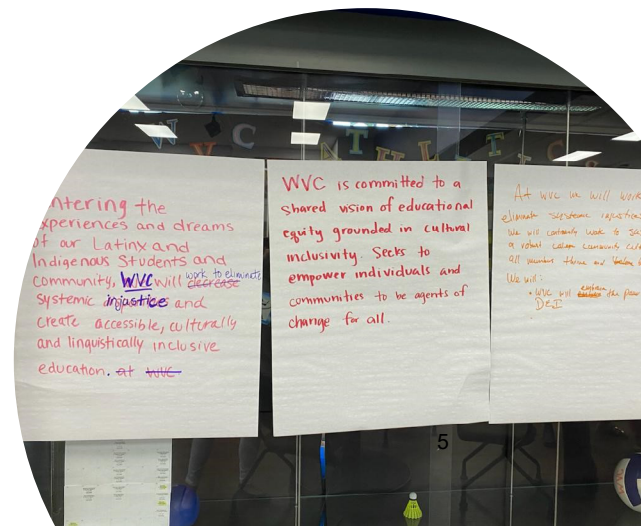 W V C
ntering the
xperiences and dreams
of our Latinx and
Indigenous Students and
community, WVC will work to eliminate
decrease
systemic injustice and
create accessible, culturally
and linguistically inclusive
education. at WVC
WVC is committed to a
shared vision of educational
equity grounded in cultural
inclusivity. Seeks to
empower individuals and
communities to be agents of
change for all.
At WVC we will work
eliminate systemic injustice
we will
work to
a
all members thrive and
We will:
• WVC will
the
D&I
5